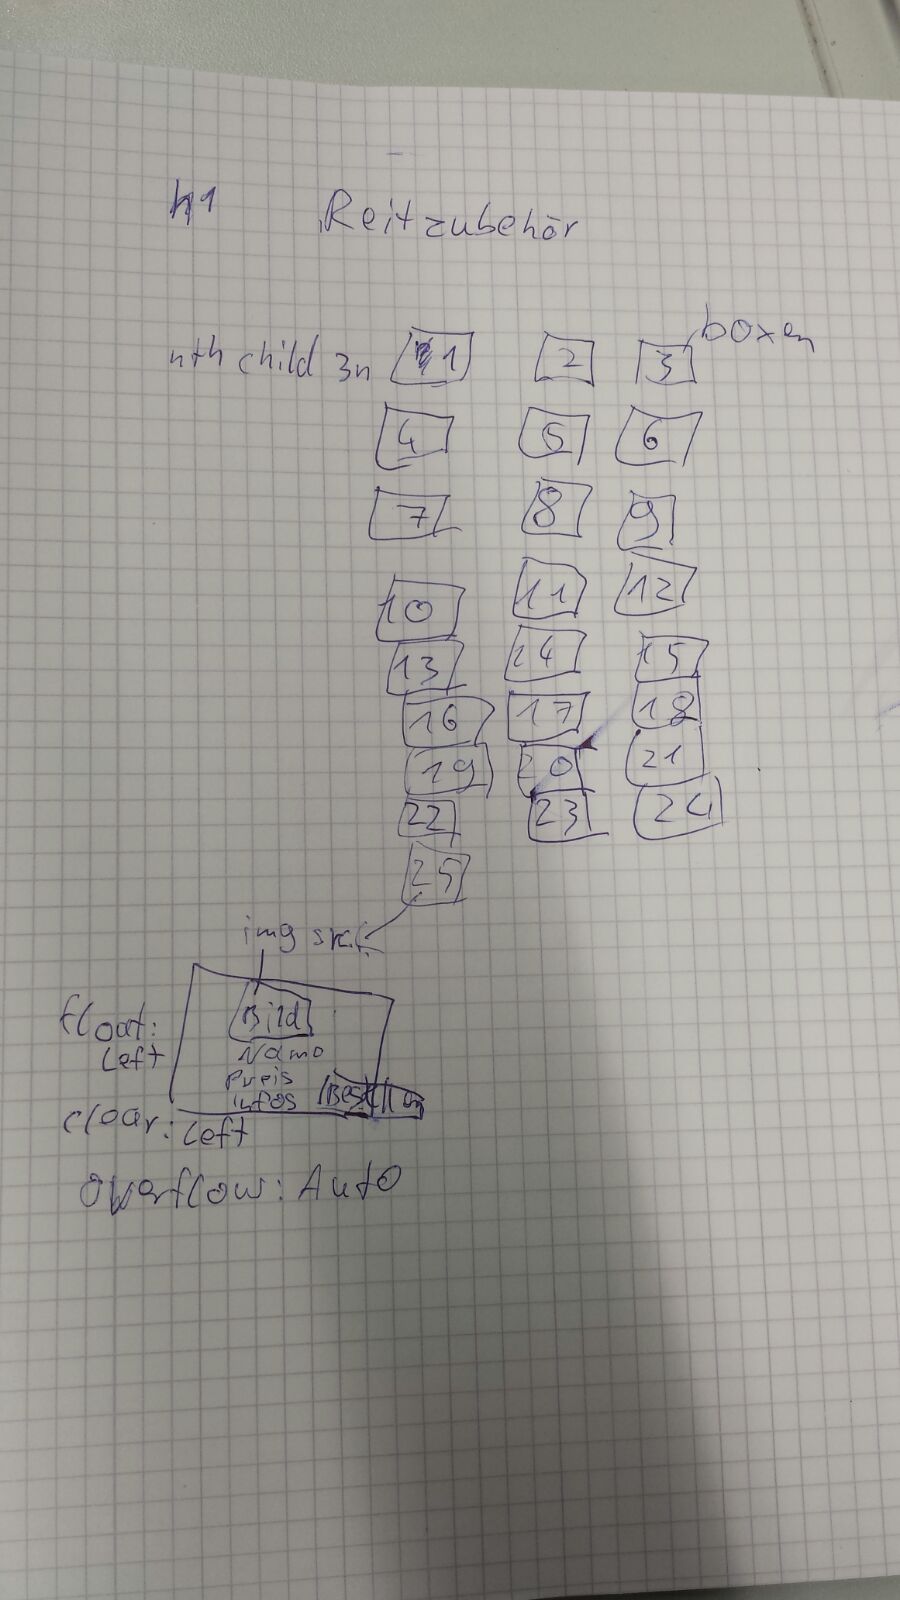 h1 Reitzubehör
boxen
nth child 3n 1 2 3
4 5 6
7 8 9
10 11 12
13 14 15
16 17 18
19 20 21
22 23 24
25
img src
float: Left
Bild
Name
Preis
Infos Bestellen
clear: Left
Overflow: Auto